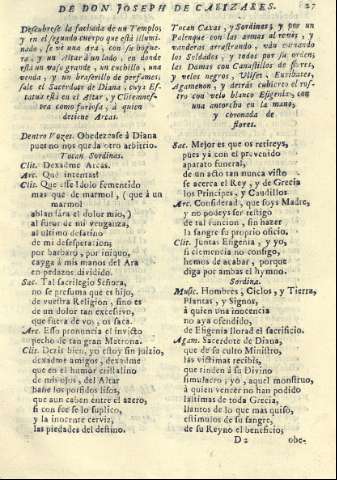 DE DON JOSEPH DE CAÑIZARES. 27
Descubrese la fachada de un Templo,
y en el segundo cuerpo que está illumi-
nado, se vè una Ara, con su hogue-
ra, y un Altar à un lado, en donde
està un vaso grande, un cuchillo, una
venda, y un braserillo de perfumes;
sale el Sacerdote de Diana, cuya Es-
tatua està en el Altar, y Clitemnes-
tra como furiosa, à quien
detiene Arcas.
Dentro Vozes. Obedezcase à Diana
puet no nos queda otro arbitrio.
Tocan Sordinas.
Clit. Dexadme Arcas.
Arc. Què intentas?
Clit. Que esse Idolo fementido
mas que de marmol, ( què à un
marmol
ablandàra el dolor mio, )
al furor de mi venganza,
al ultimo desatino
de mi desesperacion;
por barbaro, por iniquo,
cayga à mis manos del Ara
en pedazos dividido.
Sac. Tal sacrilegio Señora,
no se presuma que es hijo,
de vuestra Religion, sino es
de un dolor tan excessivo,
que fuera de vos, os saca.
Arc. Esso pronuncia el invicto
pecho de tan gran Matrona.
Clit. Decis bien, yo estoy sin juizio,
dexadme amigos, dexadme
que en el humor cristalino
de mis ojos, del Altar
bañe los porfidos lisos,
que aun caben entre el azero,
si con èl se lo suplico,
y la inocente cerviz,
las piedades del destino.
Tocan Caxas, y Sordinas y por un
Palenque con las armas al revès, y
vanderas arrastrando, vàn entrando
los Soldados, y todos por su orden;
las Damas con Canastillos de flores,
y velos negros, Ulises, Euribates,
Agamenon, y detràs cubierto el ros-
tro con velo blanco Efigenia, con
una antorcha en la mano,
y coronada de
flores.
Sac. Mejor es que os retireys,
pues yà con el prevenido
aparato funeral,
de un acto tan nunca visto
se acerca el Rey, y de Grecia
los Principes, y Caudillos.
Arc. Considerad, que soys Madre,
y no podeys ser testigo
de tal funcion, sin hazer
la sangre su proprio oficio.
Clit. Juntas Efigenia, y yo,
si clemencia no consigo,
hemos de acabar, porque
diga por ambas el hymno.
Sordina.
Music. Hombres, Cielos, y Tierra,
Plantas, y Signos,
à quien una inocencia
no aya ofendido,
de Efigenia llorad el sacrificio.
Agam. Sacerdote de Diana,
que de su culto Ministro,
las victimas recibis,
que rinden à su Divino
simulacro; yo, aquel monstruo,
à quien vencer no han podido
lastimas de toda Grecia,
llantos de lo que mas quiso,
estimulos de su sangre,
de su Reyno el beneficio;
D 2 obe-